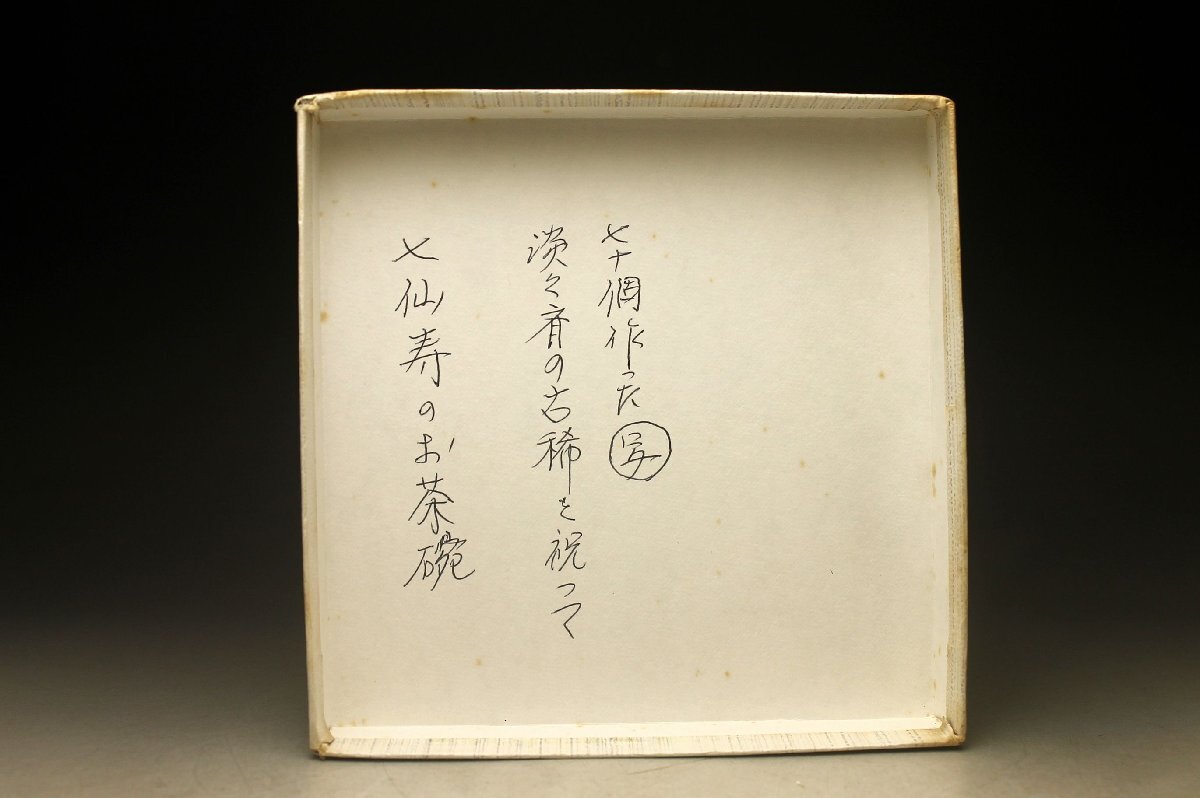 七十個作った
淡々斎の古稀を祝って
七仙寿のお茶碗